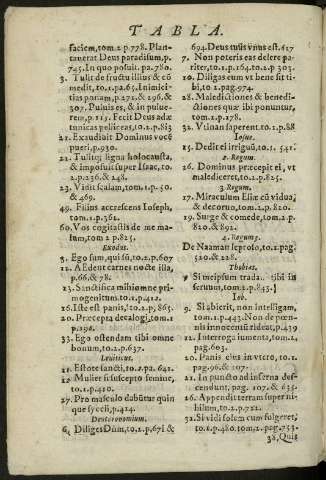 TABLA.
faciem, tom.2 p.778. Plan-
tauerat Deus paradisum, p.
745. In quo posuit. pa.780.
3. Tulit de fructu illius & cō
medit, to.1. pa.65. Inimici-
tias ponam, p.271. & 296. &
307. Puluis es, & in pulue-
rem, p.115. Fecit Deus adæ
tunicas pelliceas, to.2.p.813
21. Exaudiuit Dominus vocē
pueri, p.930.
22. Tulitq; ligna holocausta,
& imposuit super Isaac, to.
2.p.236. & 248.
23. Vidit scalam, tom.1.p.50.
& 469.
49. Filius accrescens Ioseph,
tom.1.p.361.
60. Vos cogitastis de me ma-
lum, tom 2 p.825.
Exodus.
3. Ego sum, qui sū, to.2.p.607
12. A Edent carnes nocte illa,
p.66. & 78.
23. Sanctifica mihi omne pri-
mogenitum. to.1.p.412.
26. Iste est panis, to.2 p, 865.
20. Præcepta decalogi, tom.1
p.190.
33. Ego ostendam tibi omne
bonum, to.2.p.637.
Leuiticus.
21. Estote sancti, to.2. pa. 641.
12. Mulier si suscepto semine,
to.2.p.410.
27. Pro masculo dabūtur quin
que sycli, p.424.
Deuteronomium.
6. Diliges Dūm, to.2.p.671 &
694. Deus tuus vnus est. 617
7. Non poteris eas delere pa-
riter, to.1.p.164. to.2 p 303.
10. Diligas eum vt bene sit ti-
bi, to.2 pag.974.
28. Maledictiones & benedi-
ctiones quæ ibi ponuntur,
tom.2 p.178.
32. Vtinan saperent. to.1.p.88
Iosue.
15. Dedit ei irriguū, to.5, 541.
2. Regum.
26. Dominus præcepit ei, vt
malediceret, to.2.p.825.
3. Regum.
17. Miraculum Eliæ cū vidua,
& decoruo, tom.2.p.820.
19. Surge & comede, tom.2.p.
820. & 892.
4. Regum.
De Naaman leproso, to.2.pag.
520. & 228.
Thobias.
Vt meipsum trada. tibi in
seruum, tom.2.p.845.
Iob.
9. Si abierit, non intelligam,
tom.1.p.443. Non de pœn-
nis innocentū rideat, p.439
12. Interroga iumenta, tom.2.
pag.603.
20. Panis eius in vtero, to.1.
pag.96. & 107.
21. In puncto ad inferna des-
cendunt, pag. 107. & 635.
26. Appendit terram super ni-
hilum, to.2.p.722.
31. Si vidi solem cum fulgeret,
to.2.p.480. tom.2. pag.753.
38. Quis